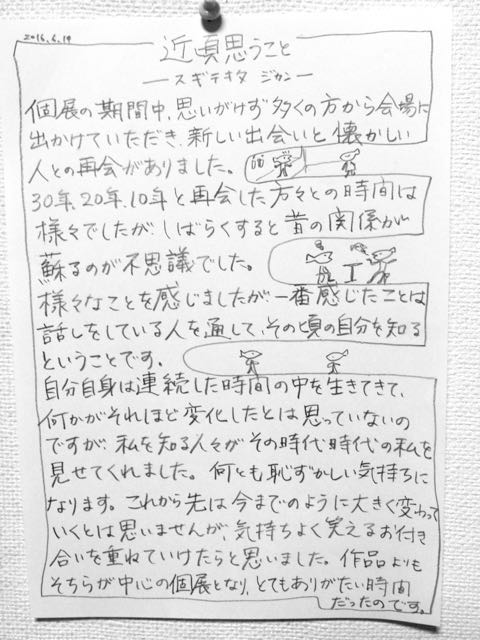 2016.6.19
近頃思うこと
ースギテキタ ジカンー
個展の期間中、思いがけず多くの方から会場に
出かけていただき、新しい出会いと懐かしい
人との再会がありました。
30年、20年、10年と再会した方々との時間は
様々でしたが、しばらくすると昔の関係が
蘇るのが不思議でした。
様々なことを感じましたが、一番感じたことは
話しをしている人を通して、その頃の自分を知る
ということです。
自分自身は連続した時間の中を生きてきて、
何かがそれほど変化したとは思っていないの
ですが、私を知る人々がその時代時代の私を
見せてくれました。何とも恥ずかしい気持ちに
なります。これから先は今までのように大きく変わって
いくとは思いませんが、気持ちよく笑えるお付き
合いを重ねていけたらと思いました。作品よりも
そちらが中心の個展となり、とてもありがたい時間
だったのです。